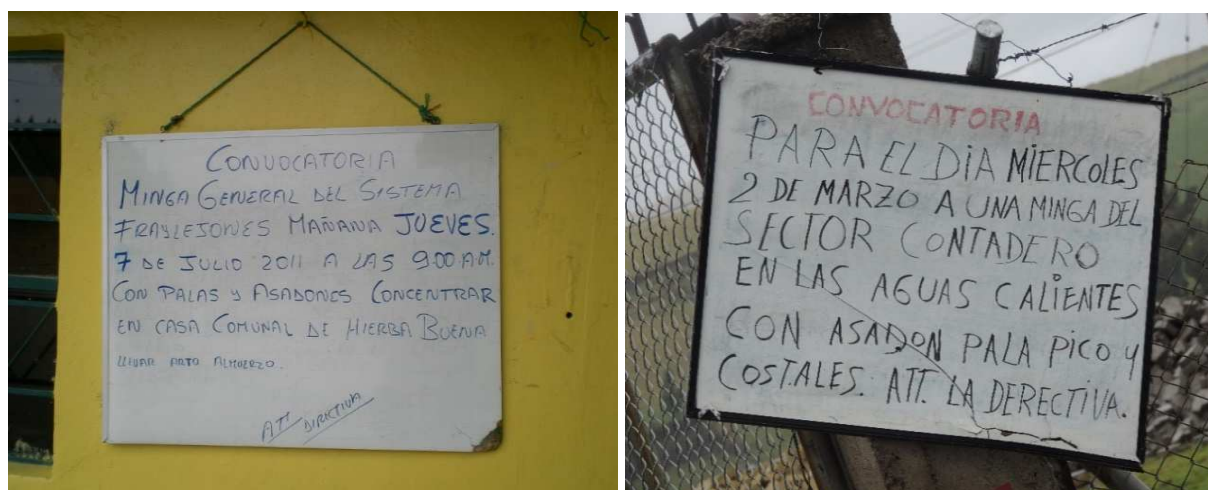 CONVOCATORIA
MINGA GENERAL DEL SISTEMA
FRAYLEJONES MAÑANA JUEVES.
7 DE JULIO 2011 A LAS 9:00 A.M.
CON PALAS y ASADONES CONCENTRAR
EN CASA COMUNAL DE HIERBA BUENA
LLEVAR ALMUERZO.
ATT DIRECTIVA
CONVOCATORIA
PARA EL DIA MIERCOLES
2 DE MARZO A UNA MINGA DEL
SECTOR CONTADERO
EN LAS AGUAS CALIENTES
CON ASADON PALA PICO y
COSTALES. ATT. LA DERECTIVA.